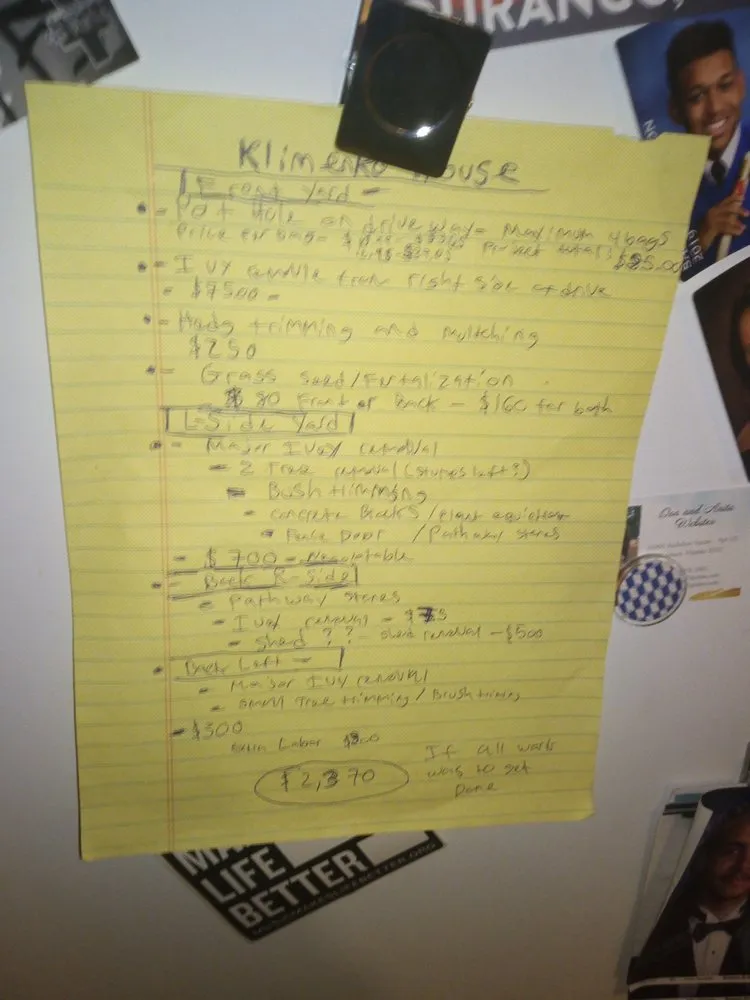 URANCE,
Klimenko House
Front Yard -
- Pot Hole on drive way = Maximum 4 bags
Price per bag = Project total: $25.00
- Ivy handle from right side of drive
= $7500 -
- Hedg trimming and multching
$250
Grass seed/Fertalization
$ 80 Front or Back - $160 for both
L-Side Yard
- Major Ivey removal
- 2 Tree removal (stumps left?)
- Bush trimming
- concrete Blocks /
/ Pathway stones
- $700 - Negotatable
- Back R-Side
- Pathway stones
- Ivey removal -
- Shed ?? - shed removal - $500
Back Left -
- Major Ivy removal
- small Tree trimming / Brush triming
- $300
extra Labor $300
$2,370
If all work
was to get
Done
2019
Don and Anita
Webster
MA
LIFE
BETTER